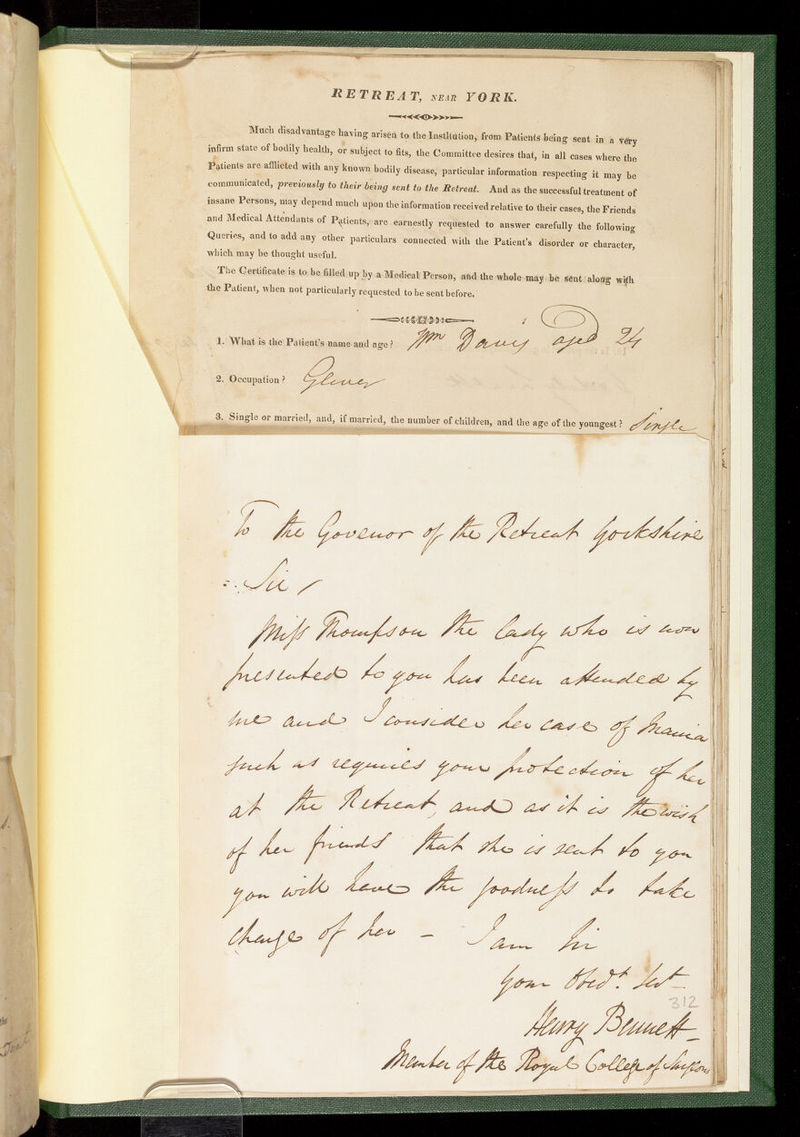 RETREAT, NEAR YORK.
Much disadvantage having arisen to the Institution, from Patients being sent in a very
infirm state of bodily health, or subject to fits, the Committee desires that, in all cases where the
Patients are afflicted with any known bodily disease, particular information respecting it may be
communicated, previously to their being sent to the Retreat. And as the successful treatment of
insane Persons, may depend much upon the information received relative to their cases, the Friends
and Medical Attendants of Patients, are earnestly requested to answer carefully the following
Queries, and to add any other particulars connected with the Patient's disorder or character,
which may be thought useful.
The Certificate is to be filled up by a Medical Person, and the whole may be sent along with
the Patient, when not particularly requested to be sent before.
1. What is the Patient's name and age? Wm Davis aged 24
2. Occupation? Glover
3. Single or married, and, if married, the number of children, and the age of the youngest? Single
To the Govenor of the Retreat Yorkshire
Sir /
Miss Thompson the Lady who is now
presented to you has been attended by
me and I consider her case of Mania
such as requires your protection of her
at the Retreat, and as it is the wish
of her friends that she is sent to you
you will have the goodness to take
charge of her - I am Sir
Your Obedt. Sevt
312
Henry Bennett
Member of the Royal College of Surgeons